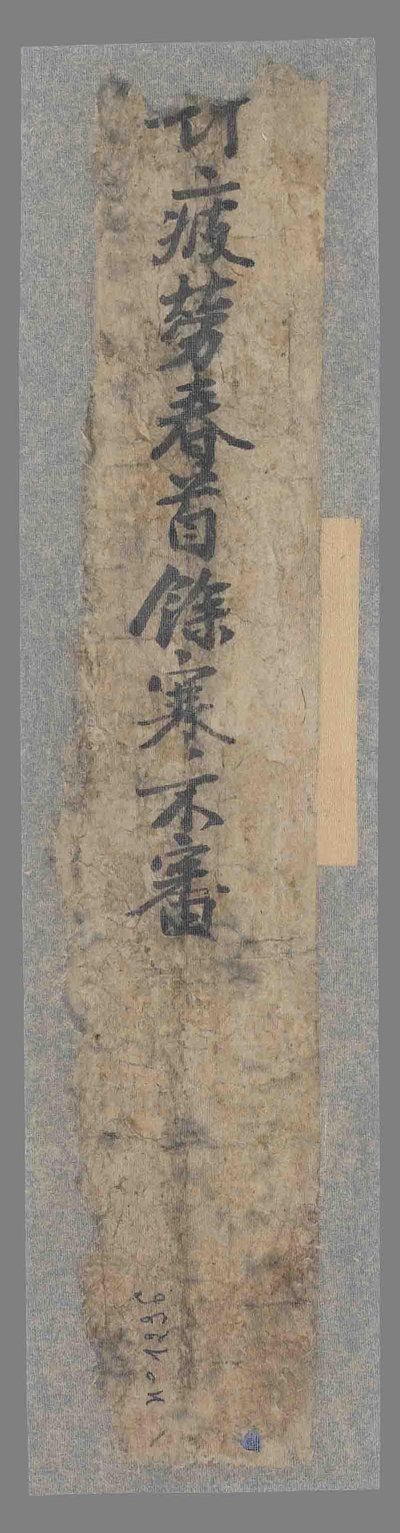 疲勞春首餘寒不審
nº 1296